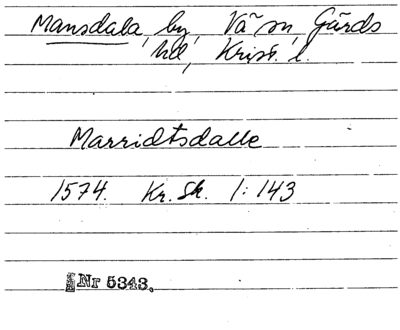 Mansdala, by, Vä sn, Gärds
hd, Krist. l.
Marridtsdalle
1574. Kr. Sk. 1:143
Nr 5343.